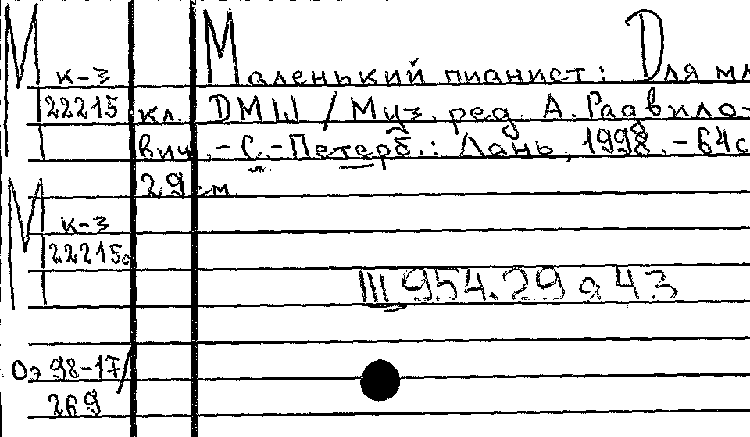 М Маленький пианист: Для мл
к-3
22215 кл. ДМШ / Муз. ред. А. Радвило-
вич. - С.-Петерб.: Лань, 1998. - 64с
29 см
М
к-3
22215а
III 954.29 а 43
Оэ 98-17/
269